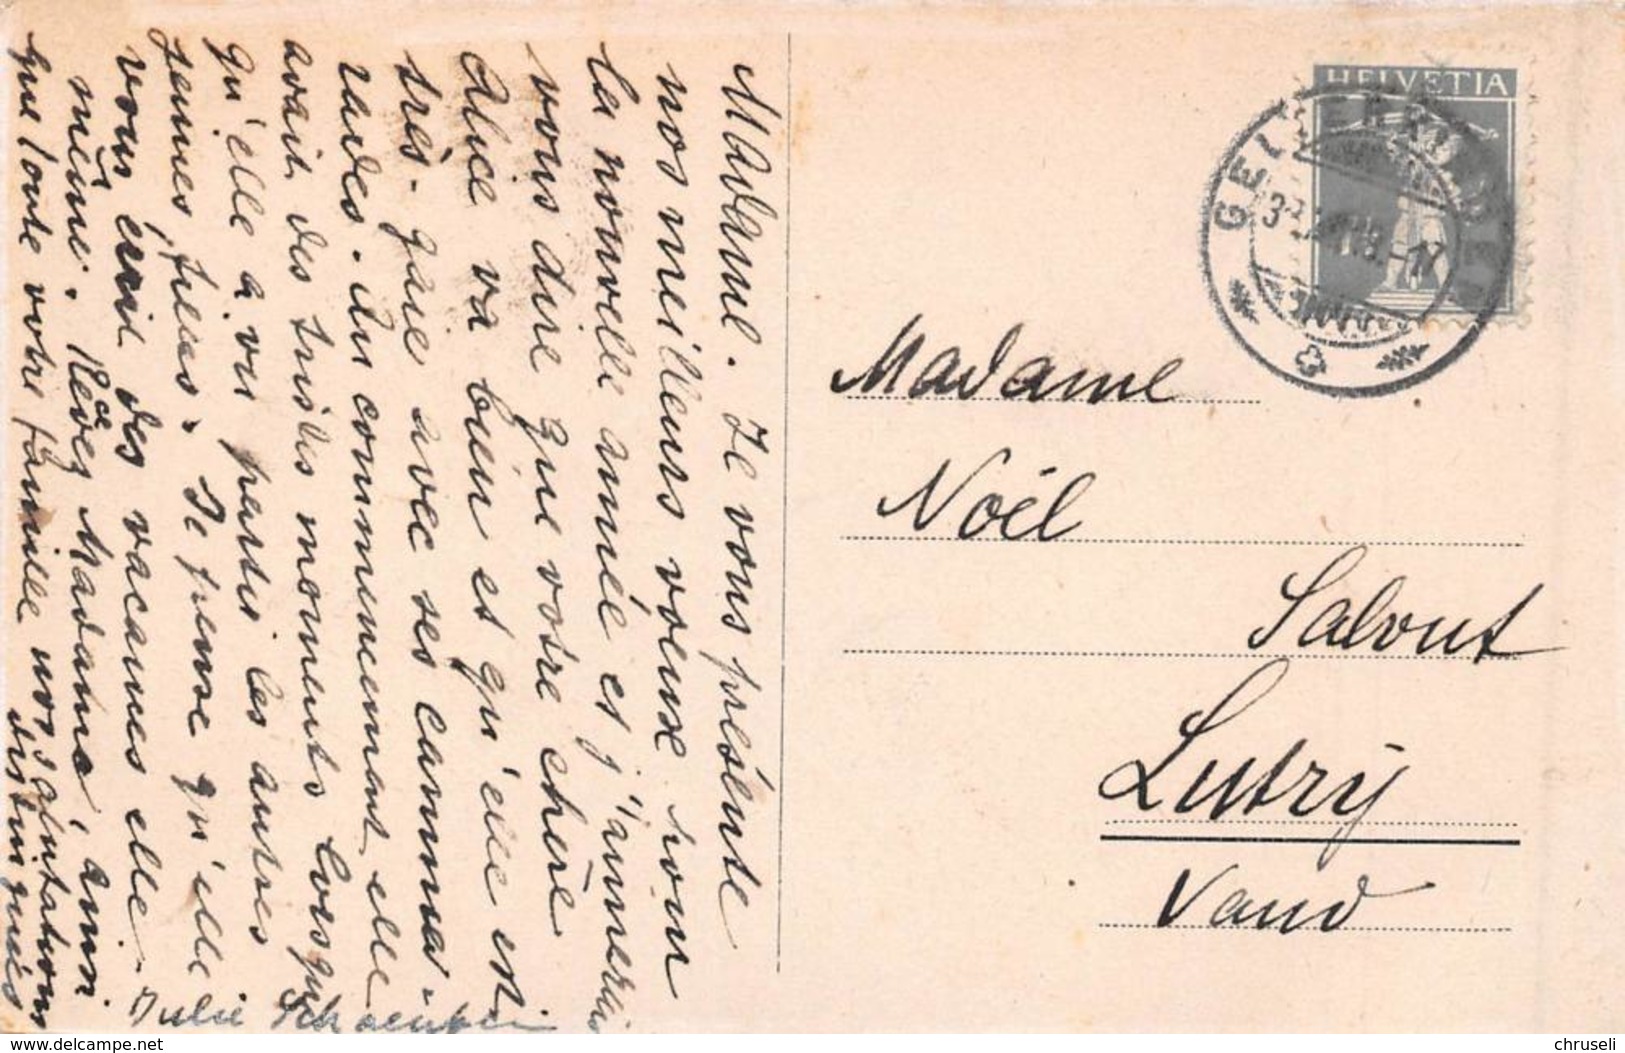 Madame. Je vous présente
nos meilleurs voeux pour
la nouvelle année et j'aimerai
vous dire que votre chère
Alice va bien et qu'elle est
très gaie avec ses camma-
rades. Au commencement elle
avait des tristes moments lorsque
qu'elle a vu partir les autres
jeunes filles. Je pense qu'elle
vous écrit des vacances elle-
même. Recevez Madame ainsi
que toute votre famille nos salutations
distinguées
Julie
HELVETIA
GELTERKINDEN
Madame
Noël
Salvut
Lutry
Vaud
www.delcampe.net
chruseli